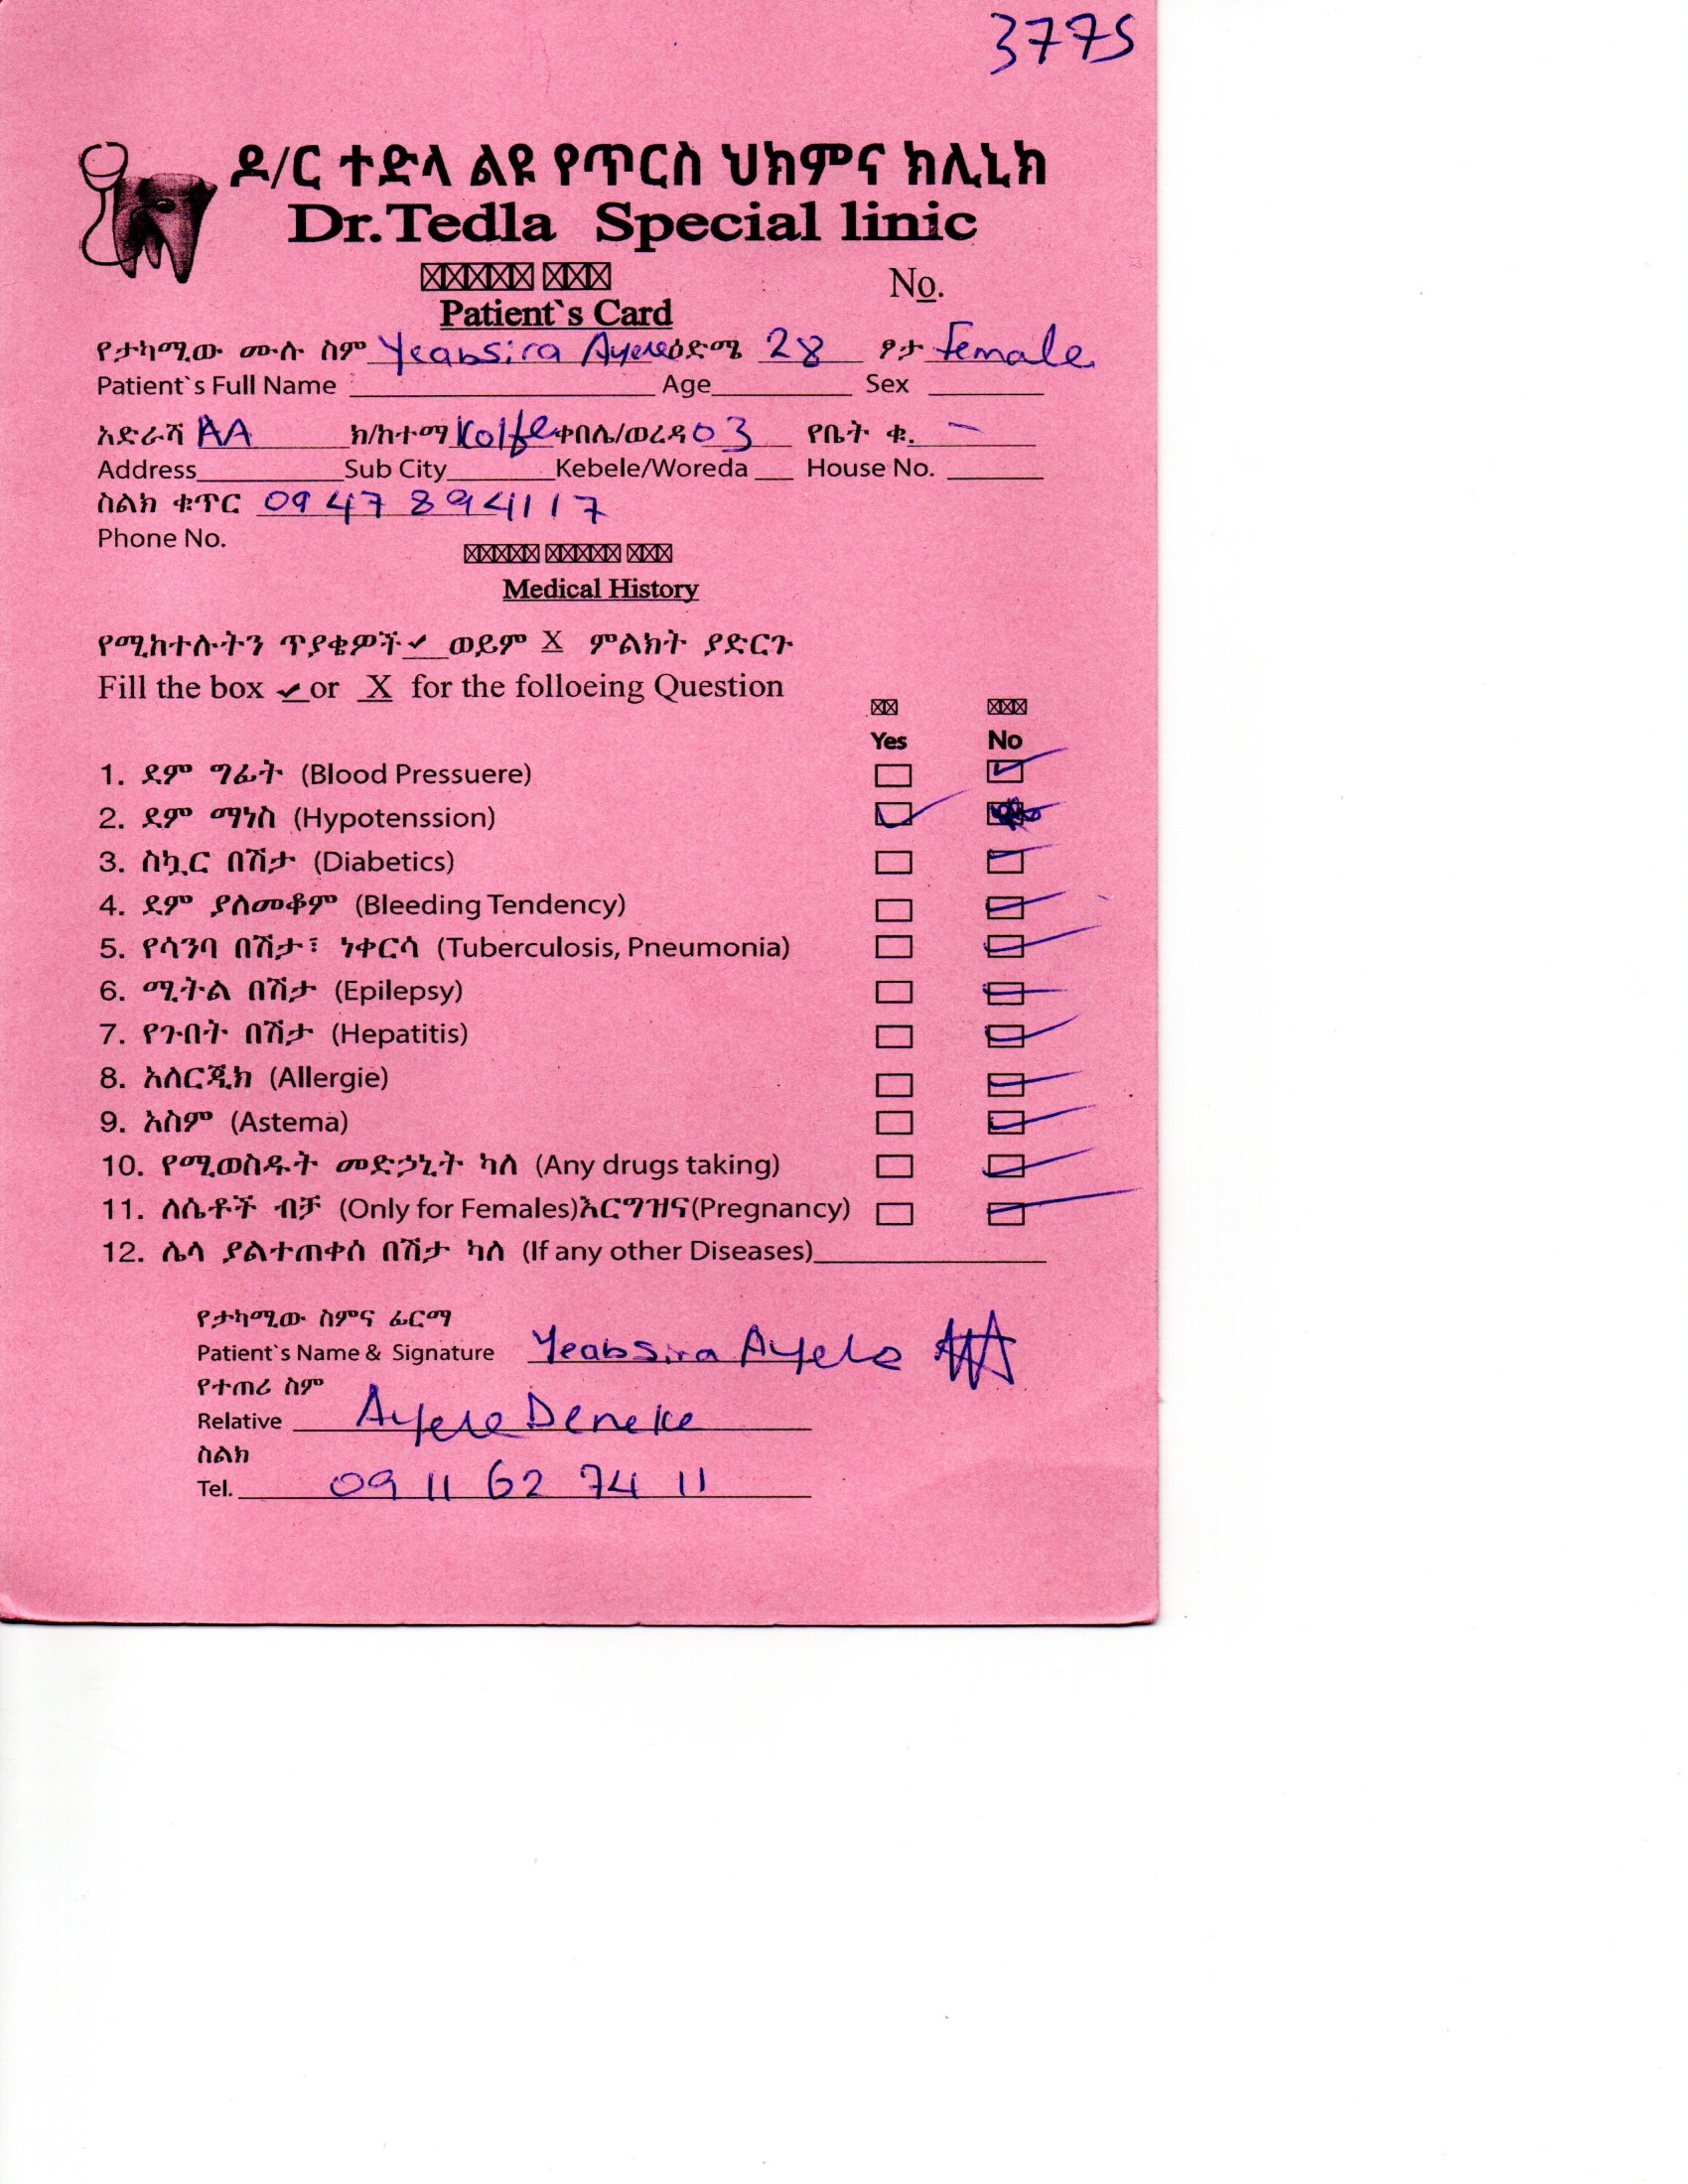 3775
ዶ/ር ተድላ ልዩ የጥርስ ህክምና ክሊኒክ
Dr.Tedla Special linic
No.
Patient`s Card
የታካሚው ሙሉ ስም Yeabsira Ayele ዕድሜ 28 ፆታ Female
Patient`s Full Name Age Sex
አድራሻ AA ክ/ከተማ Kolfe ቀበሌ/ወረዳ 03 የቤት ቁ. -
Address Sub City Kebele/Woreda House No.
ስልክ ቁጥር 0947894117
Phone No.
Medical History
የሚከተሉትን ጥያቄዎች ✓ ወይም X ምልክት ያድርጉ
Fill the box ✓ or X for the folloeing Question
Yes No
1. ደም ግፊት (Blood Pressuere)
2. ደም ማነስ (Hypotenssion)
3. ስኳር በሽታ (Diabetics)
4. ደም ያለመቆም (Bleeding Tendency)
5. የሳንባ በሽታ፣ ነቀርሳ (Tuberculosis, Pneumonia)
6. ሚትል በሽታ (Epilepsy)
7. የጉበት በሽታ (Hepatitis)
8. አለርጂክ (Allergie)
9. አስም (Astema)
10. የሚወስዱት መድኃኒት ካለ (Any drugs taking)
11. ለሴቶች ብቻ (Only for Females)እርግዝና(Pregnancy)
12. ሌላ ያልተጠቀሰ በሽታ ካለ (If any other Diseases)
የታካሚው ስምና ፊርማ
Patient`s Name & Signature Yeabsira Ayele
የተጠሪ ስም
Relative Ayele Deneke
ስልክ
Tel. 09 11 62 74 11